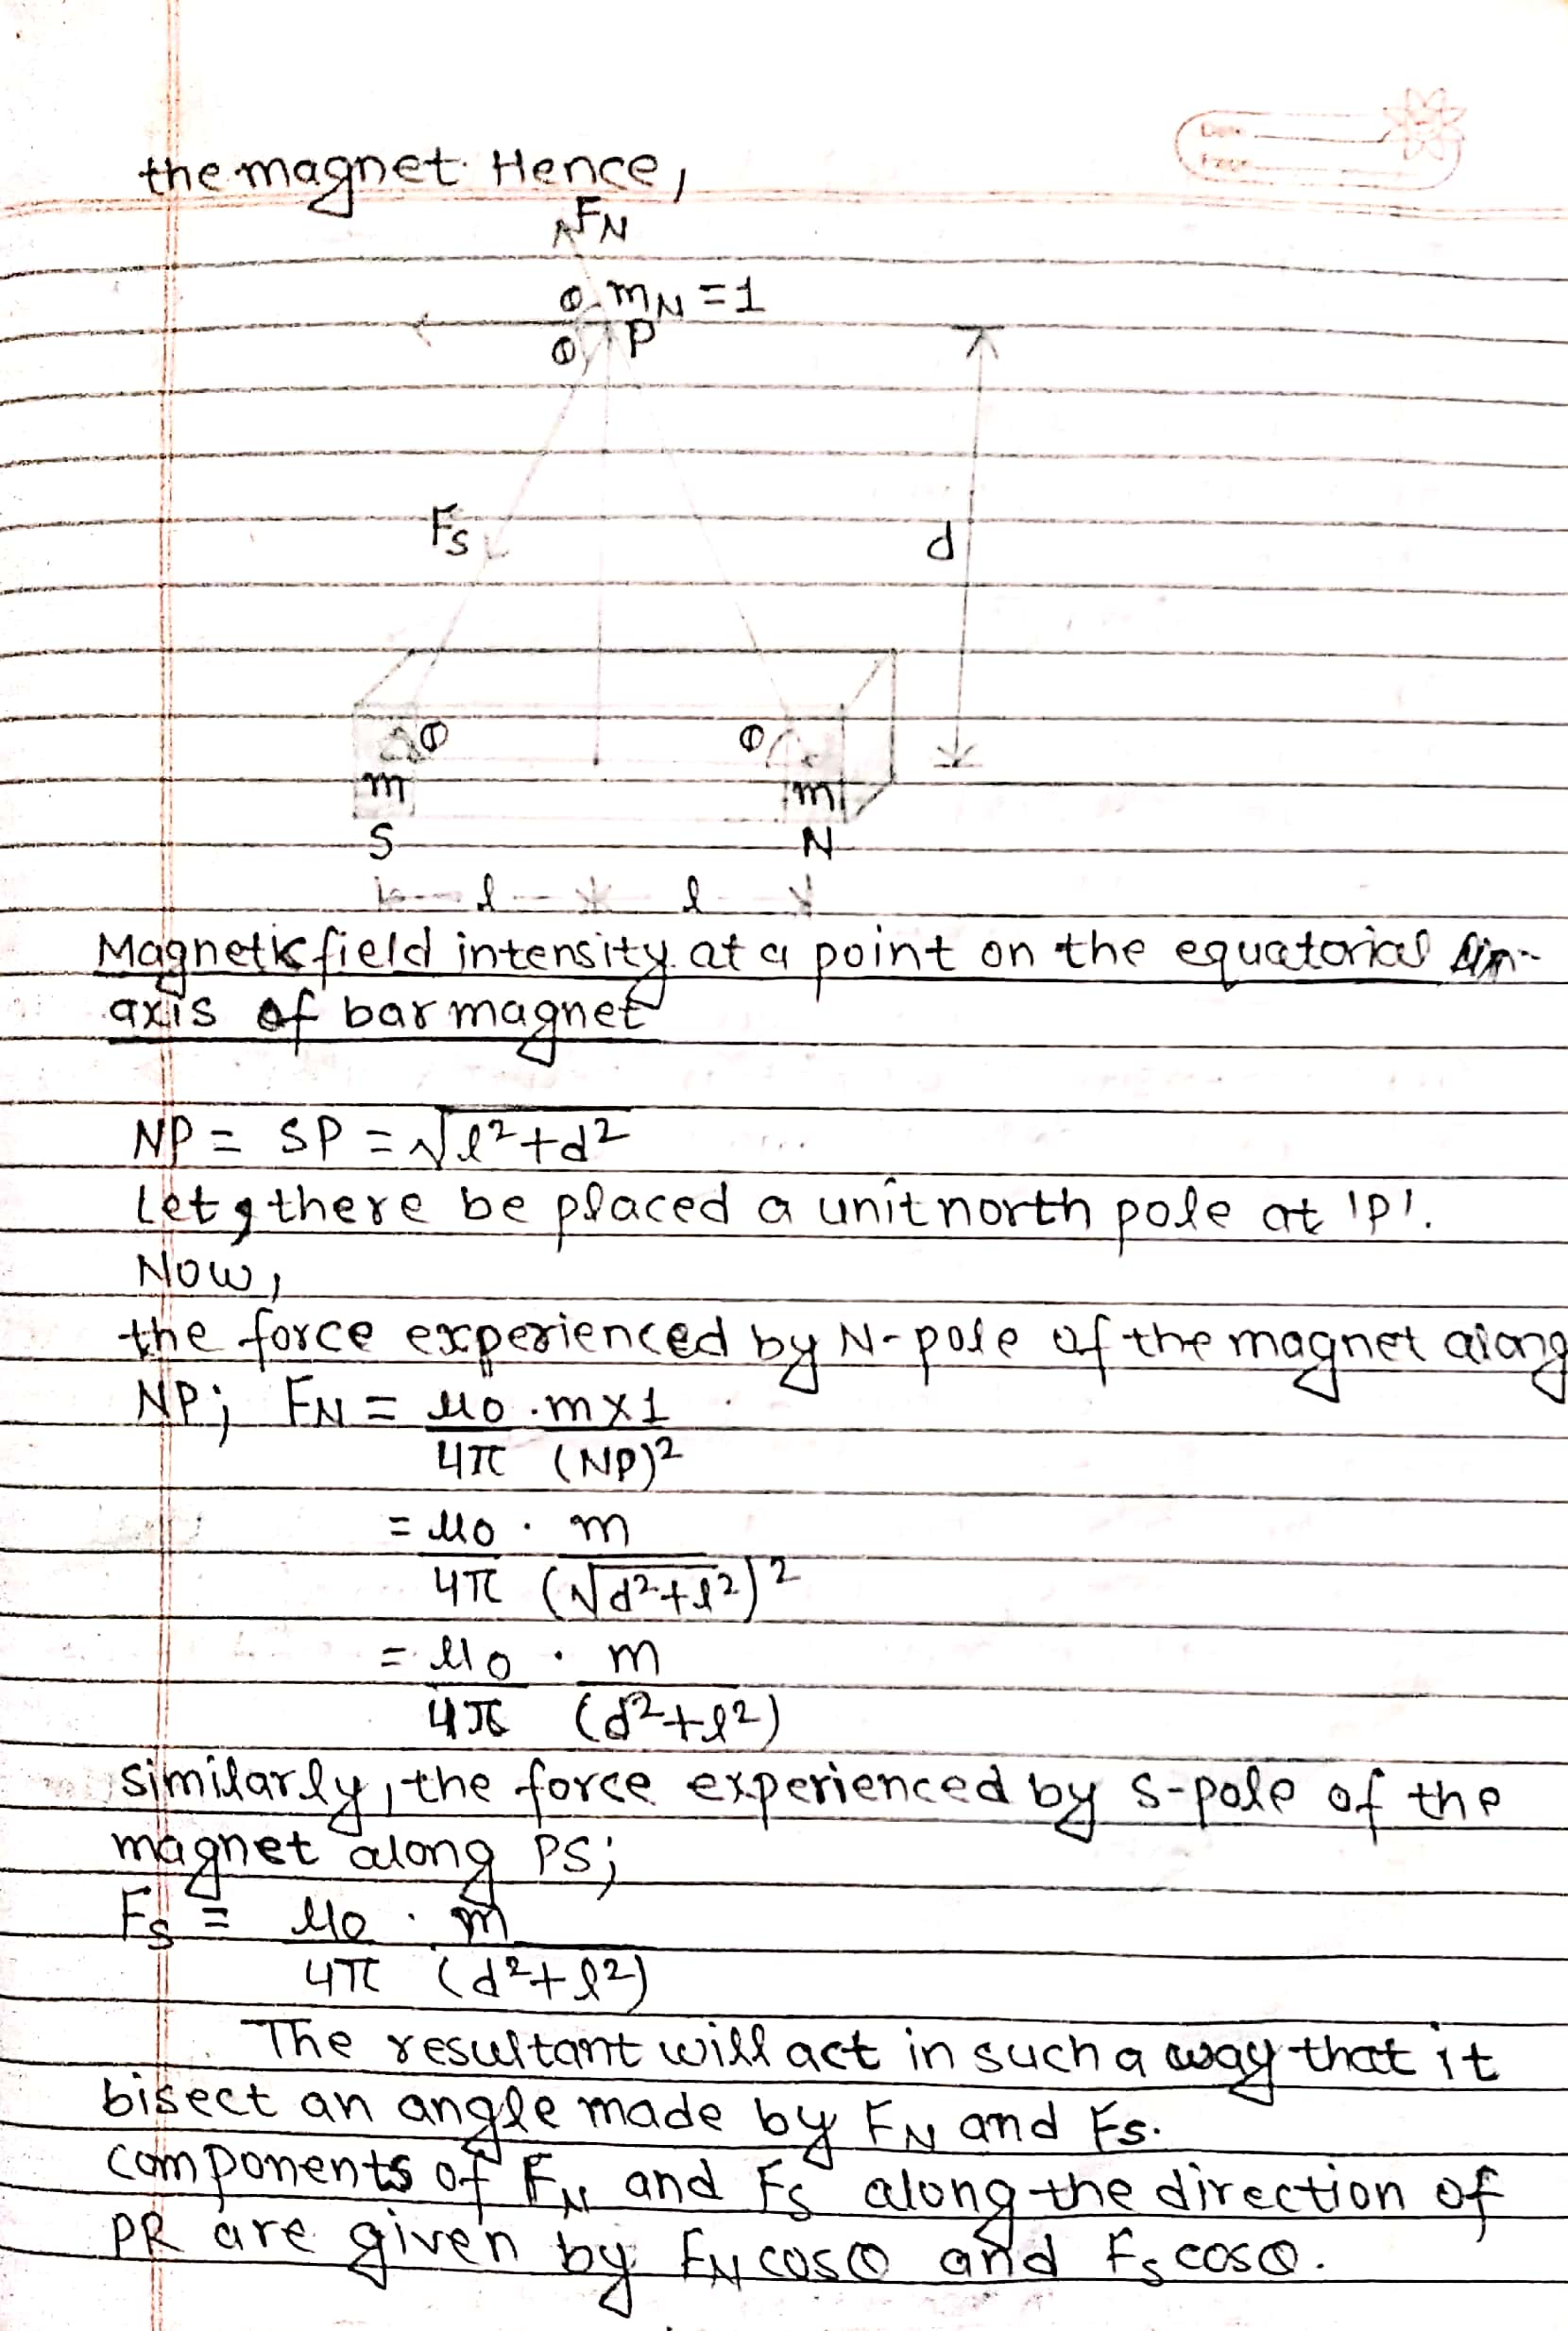 Date
Page
the magnet. Hence,
FN
θ mN = 1
θ P
Fs
d
θ θ
m m
S N
l l
Magnetic field intensity at a point on the equatorial
axis of bar magnet
NP = SP = √l²+d²
Let, there be placed a unit north pole at 'P'.
Now,
the force experienced by N-pole of the magnet along
NP; FN = μ0 . m×1
4π (NP)²
= μ0 . m
4π (√d²+l²)²
= μ0 . m
4π (d²+l²)
similarly, the force experienced by S-pole of the
magnet along PS;
Fs = μ0 . m
4π (d²+l²)
The resultant will act in such a way that it
bisect an angle made by FN and Fs.
components of FN and Fs along the direction of
PR are given by FN cosθ and Fs cosθ.